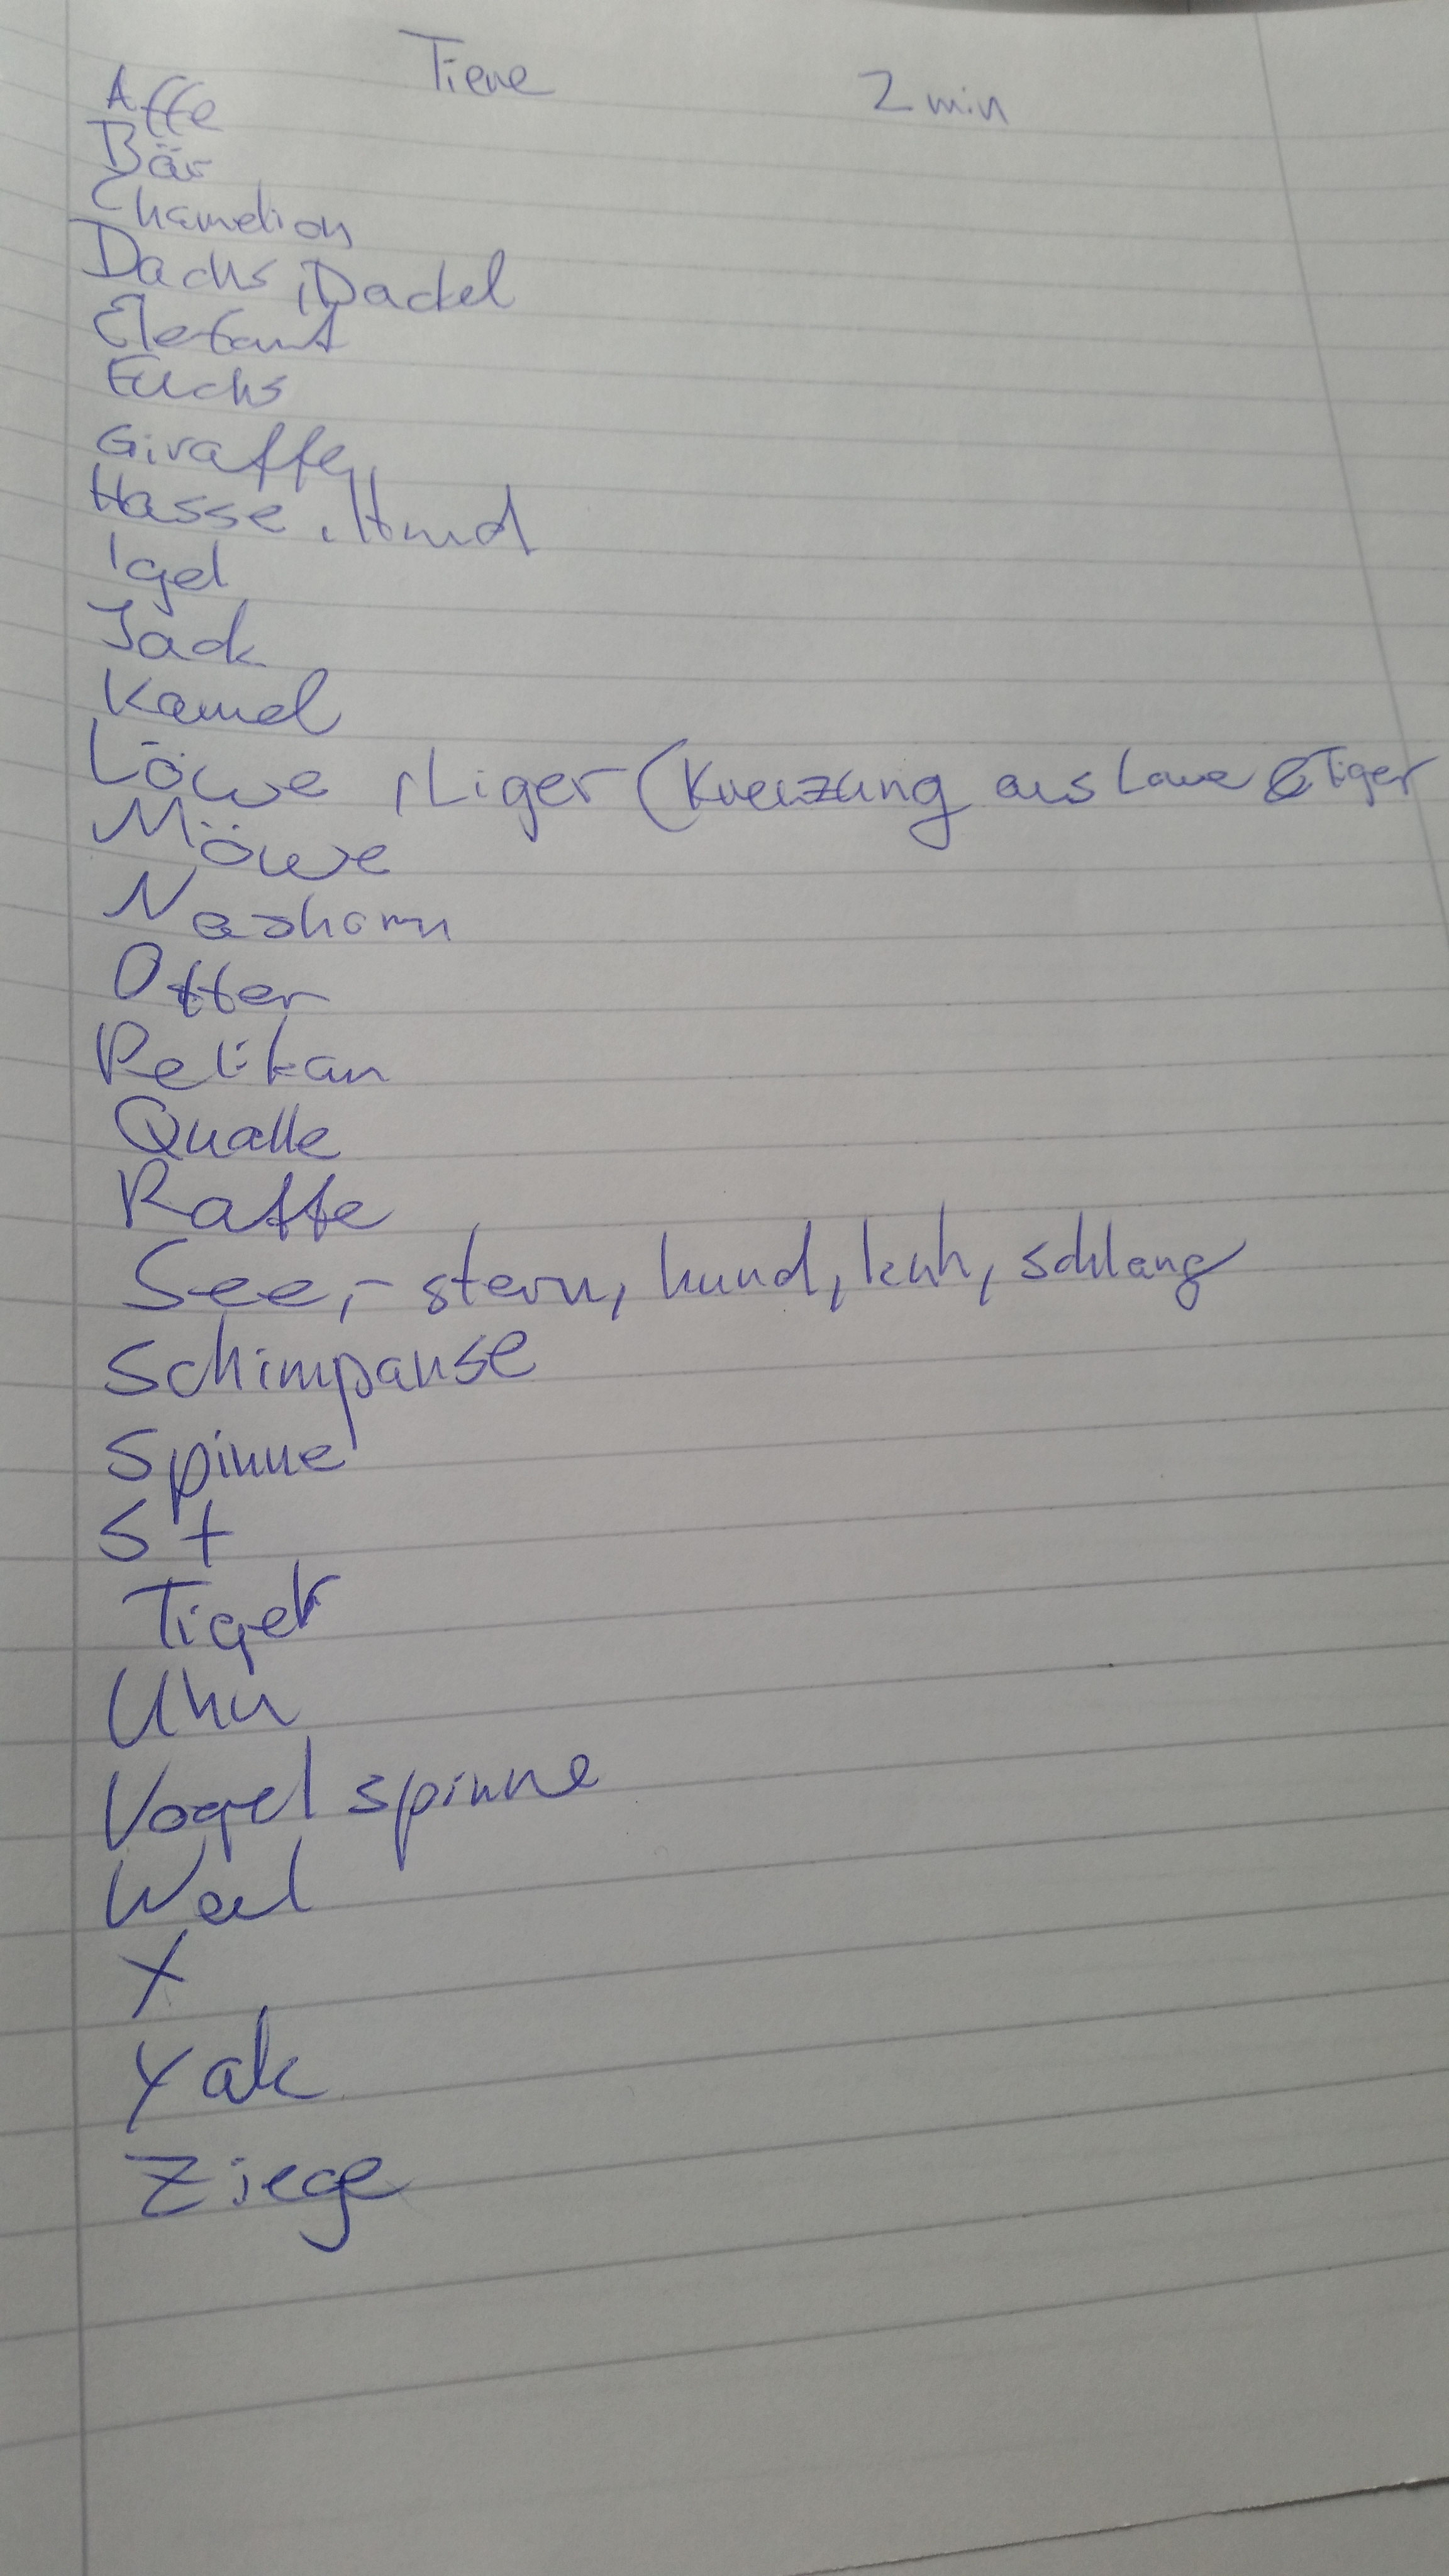 Tiere 2 min
Affe
Bär
Chamelion
Dachs, Dackel
Elefant
Fuchs
Giraffe
Hasse, Hund
Igel
Jack
Kamel
Löwe, Liger (Kreuzung aus Löwe & Tiger
Möwe
Nashorn
Otter
Pelikan
Qualle
Ratte
See,- stern, hund, kuh, schlang
Schimpanse
Spinne
St
Tiger
Uhu
Vogelspinne
Wal
X
Yak
Ziege